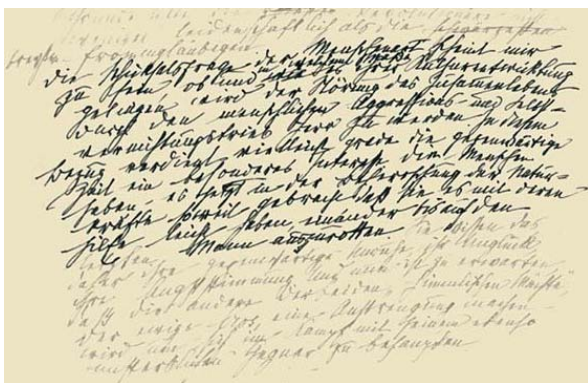 leidenschaftlich als die
frommgläubigen
Die Schicksalsfrage der Menschenart scheint mir
zu sein, ob und in welchem Maße ihrer Kulturentwicklung
gelingen wird der Störung des Zusammenlebens
durch den menschlichen Aggressions- und Selbst-
vernichtungstrieb Herr zu werden. In diesem
Bezug verdient vielleicht grade die gegenwärtige
Zeit ein besonderes Interesse. Die Menschen
haben es jetzt in der Beherrschung der Natur-
kräfte soweit gebracht daß sie es mit deren
Hilfe leicht haben, einander bis auf den
letzten Mann auszurotten. wissen das
daher ihre gegenwärtige Unruhe, ihr Unglück
ihre Angststimmung. Und nun ist zu erwarten,
daß die andere der beiden „himmlischen Mächte",
der ewige Eros eine Anstrengung machen
wird um sich im Kampf mit seinem ebenso
unsterblichen Gegner zu behaupten